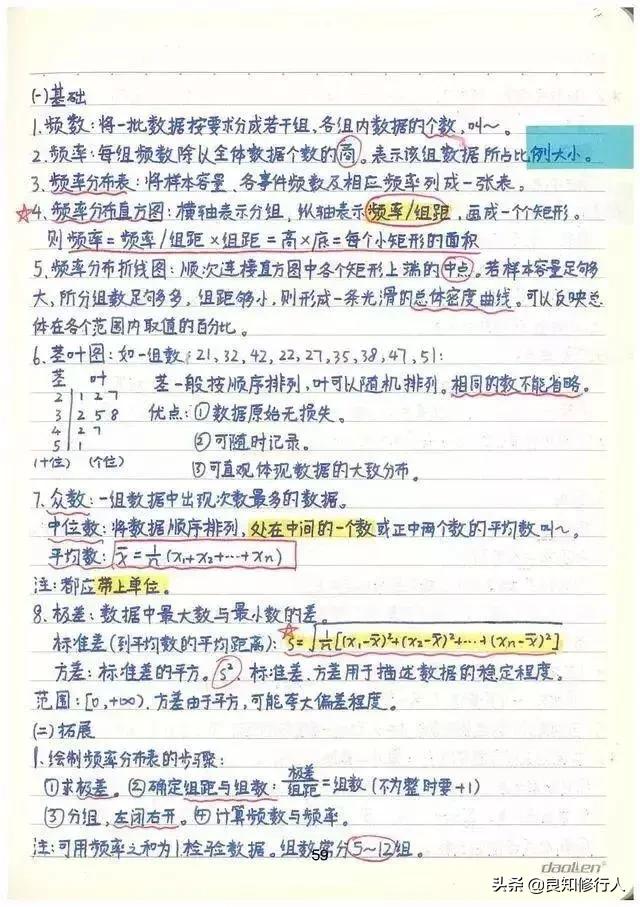 (一)基础
1.频数:将一批数据按要求分成若干组,各组内数据的个数,叫~。
2.频率:每组频数除以全体数据个数的商。表示该组数据所占比例大小。
3.频率分布表:将样本容量、各事件频数及相应频率列成一张表。
☆4.频率分布直方图:横轴表示分组,纵轴表示频率/组距,画成一个个矩形。
则频率=频率/组距×组距=高×底=每个小矩形的面积
5.频率分布折线图:顺次连接直方图中各个矩形上端的中点。若样本容量足够
大,所分组数足够多,组距够小,则形成一条光滑的总体密度曲线。可以反映总
体在各个范围内取值的百分比。
6.茎叶图:如一组数:21,32,42,22,27,35,38,47,51:
茎 叶 茎一般按顺序排列,叶可以随机排列。相同的数不能省略。
2 | 1 2 7
3 | 2 5 8 优点:①数据原始无损失。
4 | 2 7 ②可随时记录。
5 | 1
(十位) (个位) ③可直观体现数据的大致分布。
7.众数:一组数据中出现次数最多的数据。
中位数:将数据顺序排列,处在中间的一个数或正中两个数的平均数叫~。
平均数:x̄=1/n(x₁+x₂+…+xn)
注:都应带上单位。
8.极差:数据中最大数与最小数的差。
标准差(到平均数的平均距离):☆s=√1/n[(x₁-x̄)²+(x₂-x̄)²+…+(xn-x̄)²]
方差:标准差的平方。s²,标准差、方差用于描述数据的稳定程度。
范围:[0,+∞),方差由于平方,可能夸大偏差程度。
(二)拓展
1.绘制频率分布表的步骤:
①求极差。②确定组距与组数:极差/组距=组数(不为整时要+1)
③分组,左闭右开。④计算频数与频率。
注:可用频率之和为1检验数据。组数常分5~12组。
59
daolien®
头条 @良知修行人